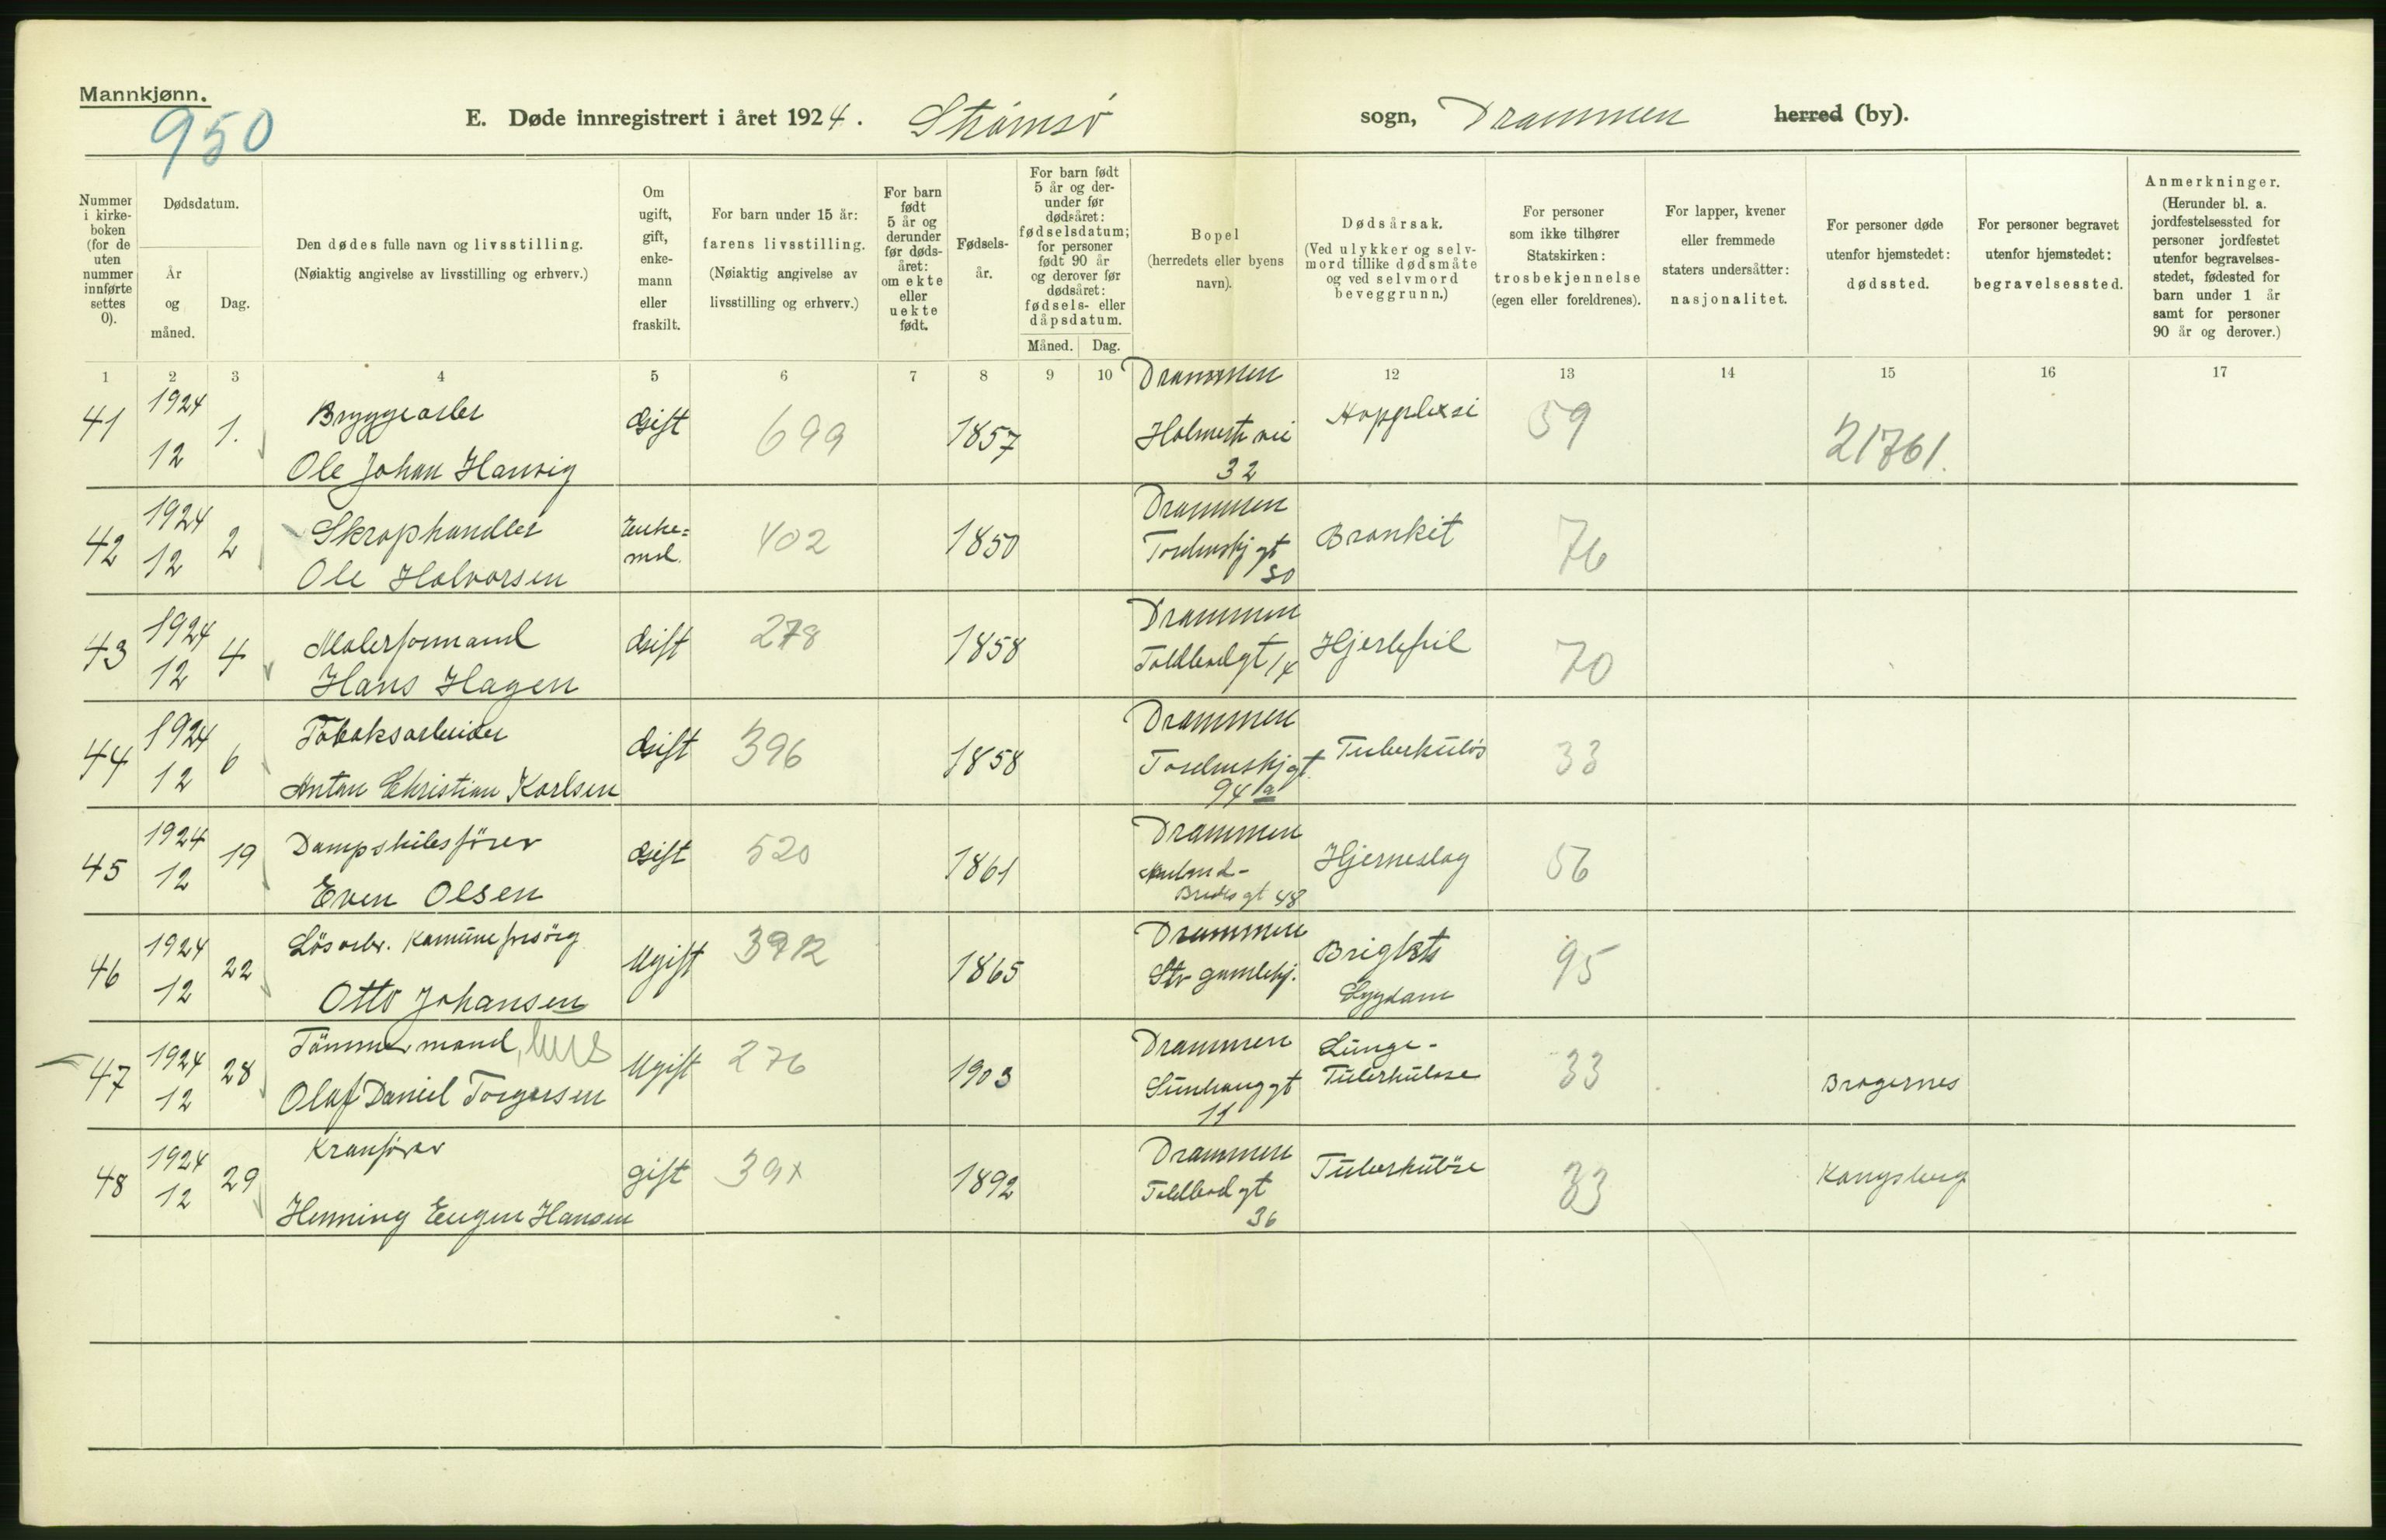 Mannkjønn.
950
E. Døde innregistrert i året 1924. Strømsø sogn, Drammen herred (by).
Nummer i kirkeboken (for de uten nummer innførte settes 0).
Dødsdatum.
År og måned.
Dag.
Den dødes fulle navn og livsstilling.
(Nøiaktig angivelse av livsstilling og erhverv.)
Om ugift, gift, enkemann eller fraskilt.
For barn under 15 år: farens livsstilling.
(Nøiaktig angivelse av livsstilling og erhverv.)
For barn født 5 år og derunder før dødsåret: om ekte eller uekte født.
Fødselsår.
For barn født 5 år og derunder før dødsåret: fødselsdatum; for personer født 90 år og derover før dødsåret: fødsels- eller dåpsdatum.
Måned. Dag.
Bopel (herredets eller byens navn).
Dødsårsak.
(Ved ulykker og selvmord tillike dødsmåte og ved selvmord beveggrunn.)
For personer som ikke tilhører Statskirken: trosbekjennelse (egen eller foreldrenes).
For lapper, kvener eller fremmede staters undersåtter: nasjonalitet.
For personer døde utenfor hjemstedet: dødssted.
For personer begravet utenfor hjemstedet: begravelsessted.
Anmerkninger.
(Herunder bl. a. jordfestelsessted for personer jordfestet utenfor begravelsesstedet, fødested for barn under 1 år samt for personer 90 år og derover.)
1 2 3 4 5 6 7 8 9 10 12 13 14 15 16 17
41 1924 12 1. Bryggearber
Ole Johan Hansvig Gift 699 1857 Drammen
Holmestr vei
32 Appopleksi 59 21761.
42 1924 12 2 Skraphandler
Ole Halvorsen Enke=
md. 402 1850 Drammen
Tordenskj gt
50 Bronkit 76
43 1924 12 4 Malerformand
Hans Hagen Gift 278 1858 Drammen
Toldbodgt 14 Hjertefeil 70
44 1924 12 6 Tobaksarbeider
Anton Christian Karlsen Gift 396 1858 Drammen
Tordenskj gt.
94 a Tuberkuløs 33
45 1924 12 19 Dampskibsfører
Even Olsen Gift 520 1861 Drammen
Bredes gt 48 Hjerneslag 56
46 1924 12 22 Løsarb. Komuneforsørg
Otto Johansen Ugift 3912 1865 Drammen
Str gamlehj. Brights
Sygdam 95
47 1924 12 28 Tömmermand, hus
Olaf Daniel Torgersen Ugift 276 1903 Drammen
Sundhauggt
11 Lunge-
Tuberkulose 33 Bragernes
48 1924 12 29 Kranfører
Henning Eugen Hansen gift 39x 1892 Drammen
Toldbod gt
36 Tuberkulöse 33 Kongsberg